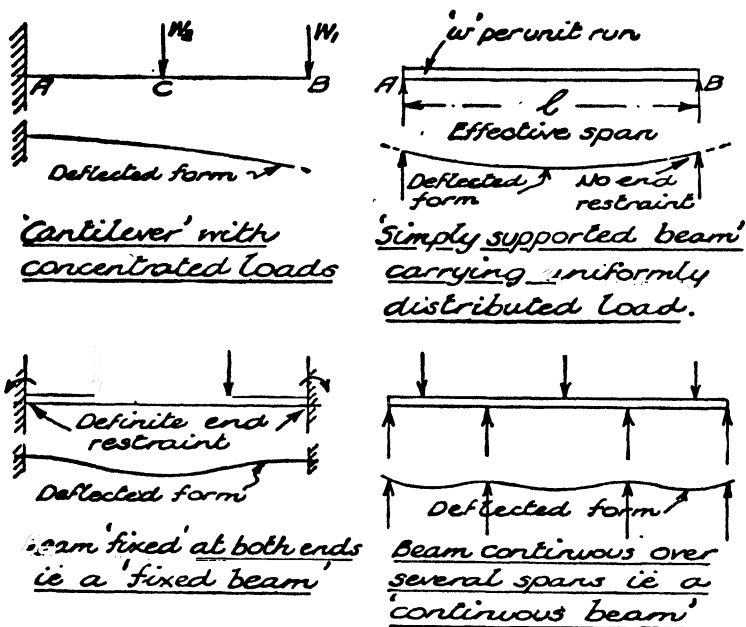 W₂
W₁
A
C
B
Deflected form
'Cantilever' with
concentrated loads
'w' per unit run
A
B
l
Effective span
Deflected
form
No end
restraint
'Simply supported beam'
carrying uniformly
distributed load.
Definite end
restraint
Deflected form
Beam 'fixed' at both ends
ie a 'fixed beam'
Deflected form
Beam continuous over
several spans ie a
'continuous beam'